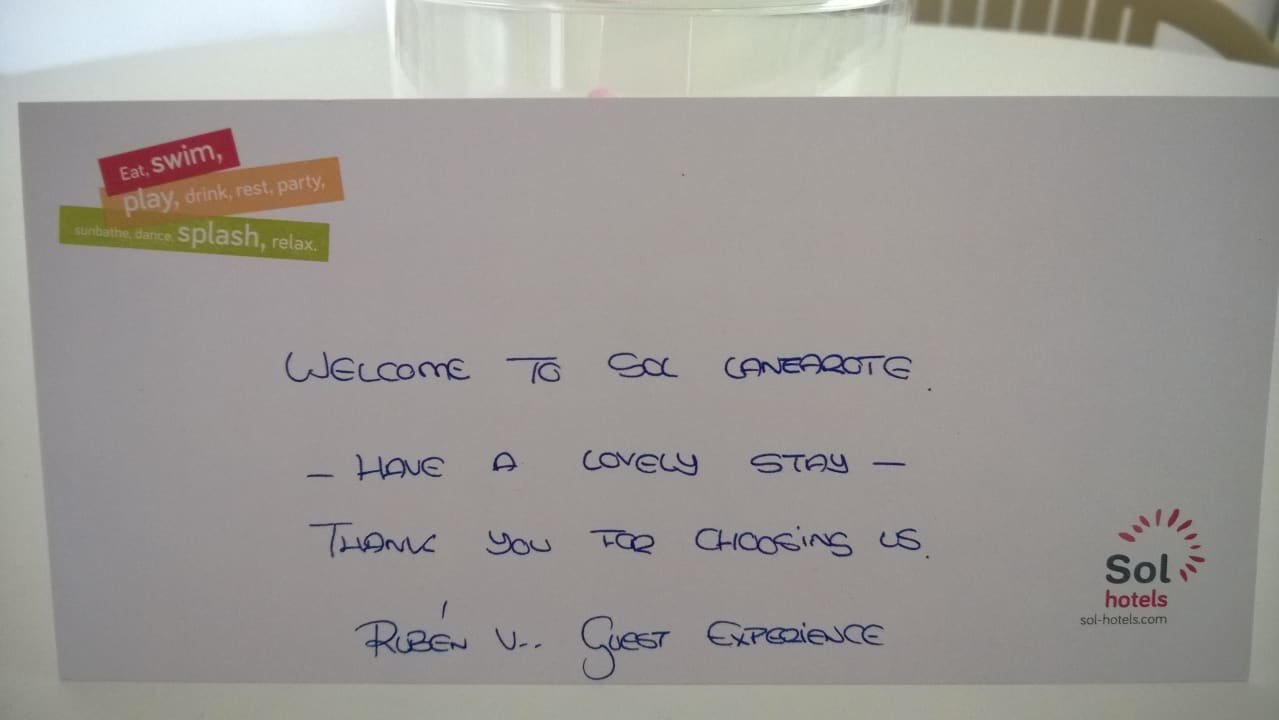 Eat, swim,
play, drink, rest, party,
sunbathe, dance, splash, relax.
WELCOME TO SOL LANZAROTE.
– HAVE A LOVELY STAY –
THANK YOU FOR CHOOSING US.
RUBÉN V.. GUEST EXPERIENCE
Sol
hotels
sol-hotels.com